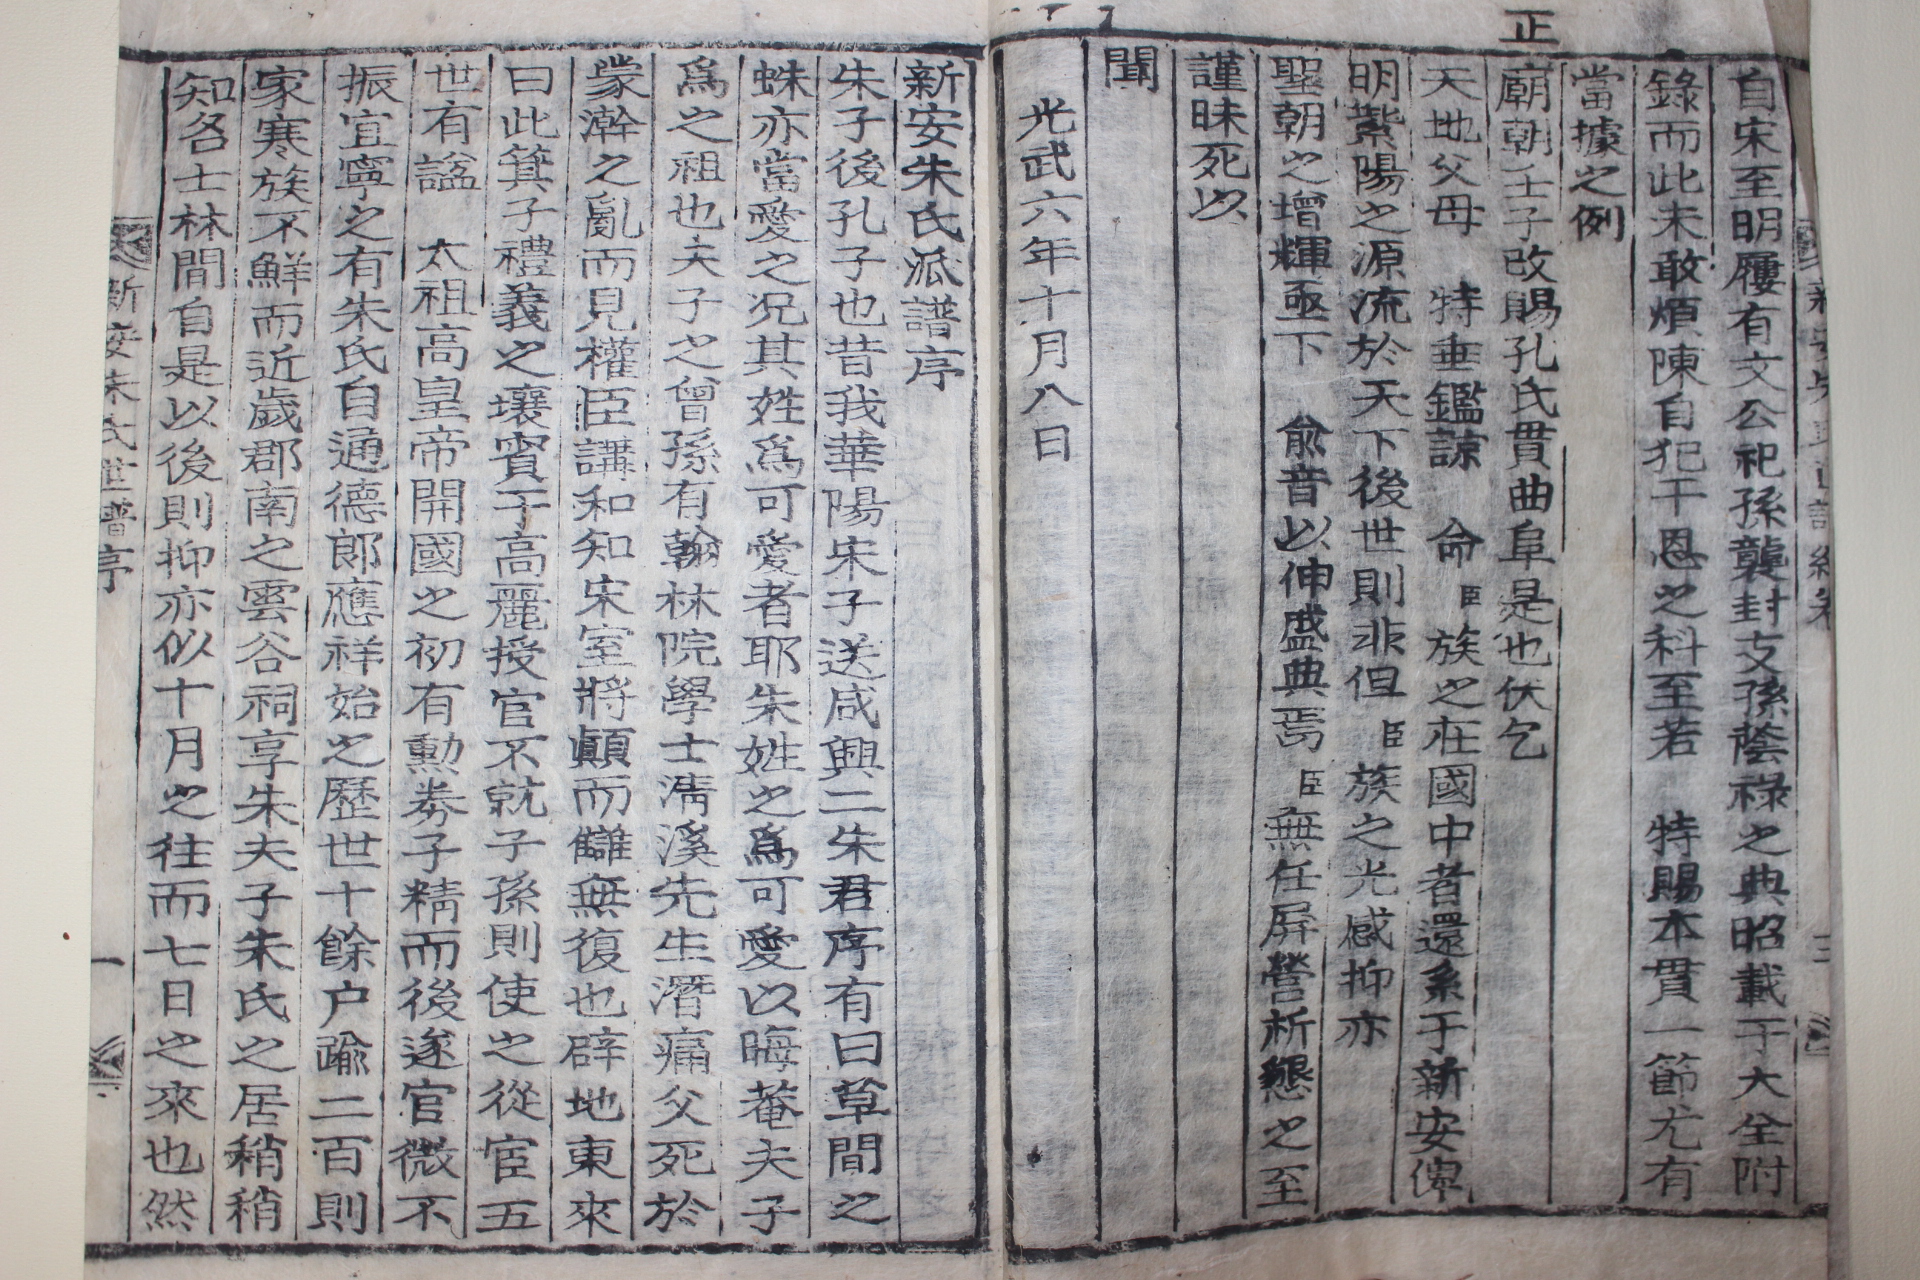 自宋至明屢有文公祀孫襲封支孫蔭祿之典昭載于大全附
錄而此未敢煩陳自犯干恩之科至若 特賜本貫一節尤有
當據之例
正
廟朝壬子改賜孔氏貫曲阜是也伏乞
天地父母 特垂鑑諒 命臣族之在國中者還系于新安俾
明紫陽之源流於天下後世則非但臣族之光感抑亦
聖朝之增輝亟下 兪音以伸盛典焉臣無任屏營祈懇之至
謹昧死以
聞
光武六年十月八日
新安朱氏派譜序
朱子後孔子也昔我華陽宋子送咸興二朱君序有曰草間之
蛛亦當愛之况其姓爲可愛者耶朱姓之爲可愛以晦菴夫子
爲之祖也夫子之曾孫有翰林院學士淸溪先生潛痛父死於
蒙澣之亂而見權臣講和知宋室將顚而讎無復也辟地東來
曰此箕子禮義之壤賓于高麗授官不就子孫則使之從宦五
世有諡 太祖高皇帝開國之初有勳劵子精而後遂官微不
振宜寧之有朱氏自通德郎應祥始之歷世十餘户踰二百則
家寒族不鮮而近歲郡南之雲谷祠享朱夫子朱氏之居稍稍
知名士林間自是以後則抑亦似十月之往而七日之來也然
新安朱氏世譜序
一